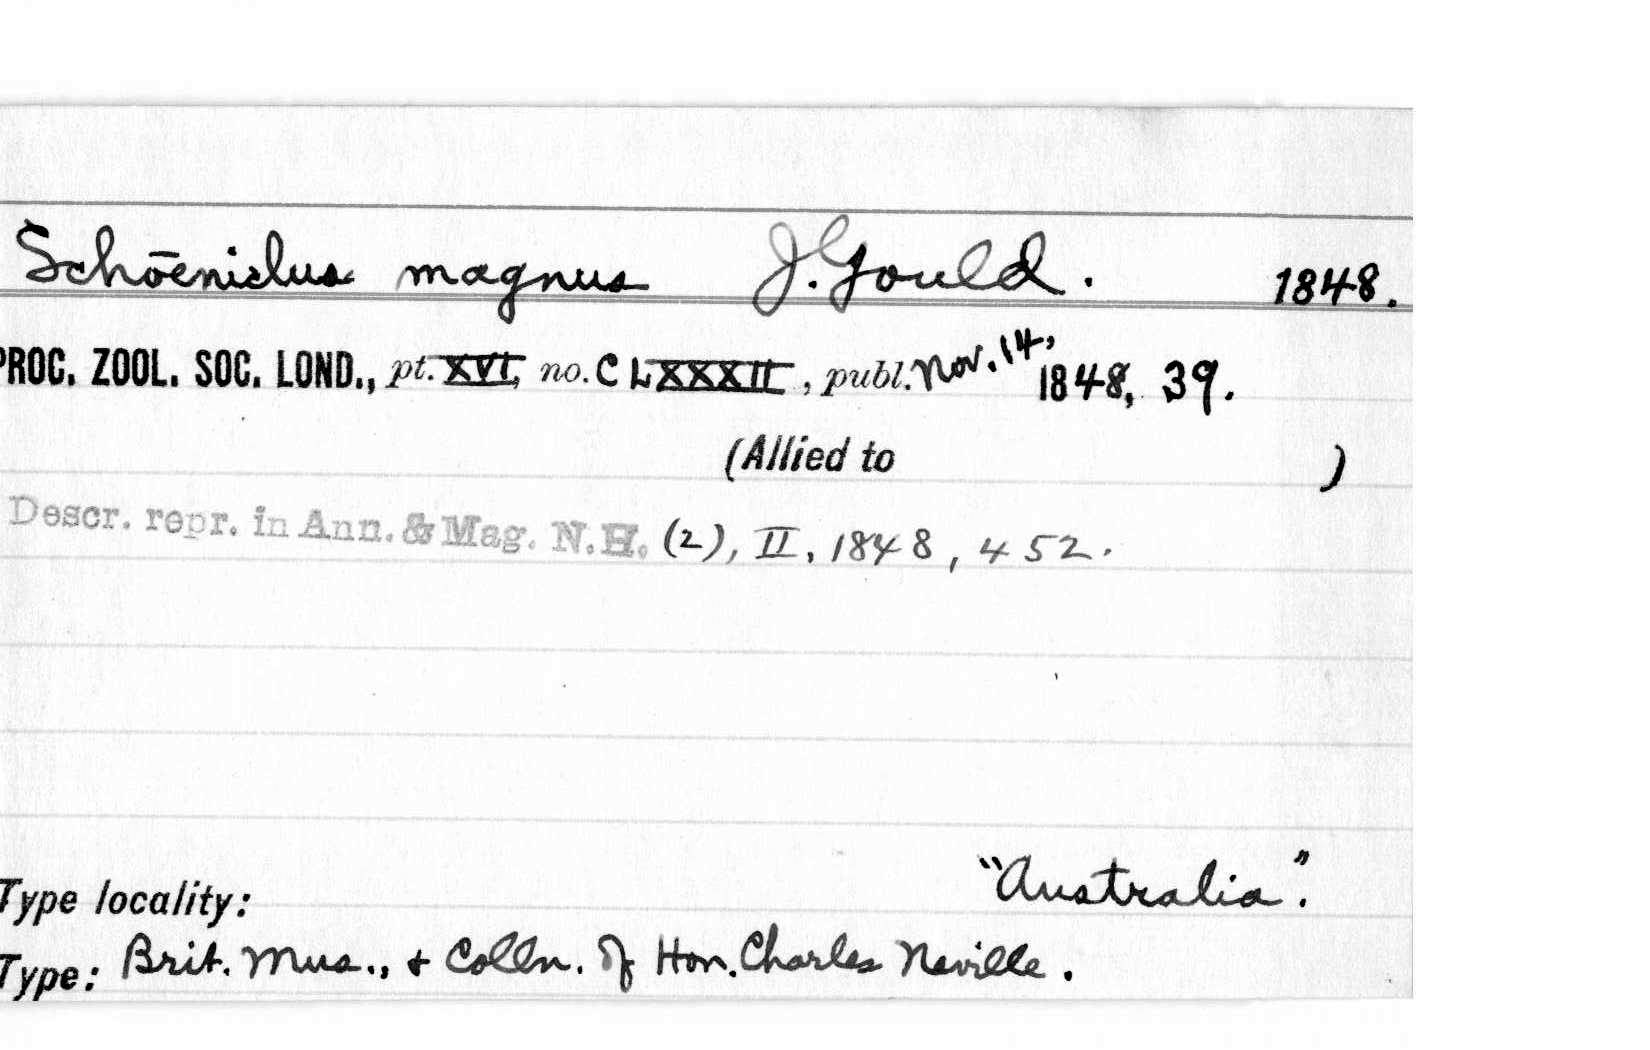 Schōeniclus magnus J. Gould. 1848.
PROC. ZOOL. SOC. LOND., pt. XVI, no. CLXXXII, publ. Nov. 14, 1848, 39.
(Allied to )
Descr. repr. in Ann. & Mag. N.H. (2), II, 1848, 452.
Type locality: "Australia".
Type: Brit. Mus., + Colln. of Hon. Charles Neville.